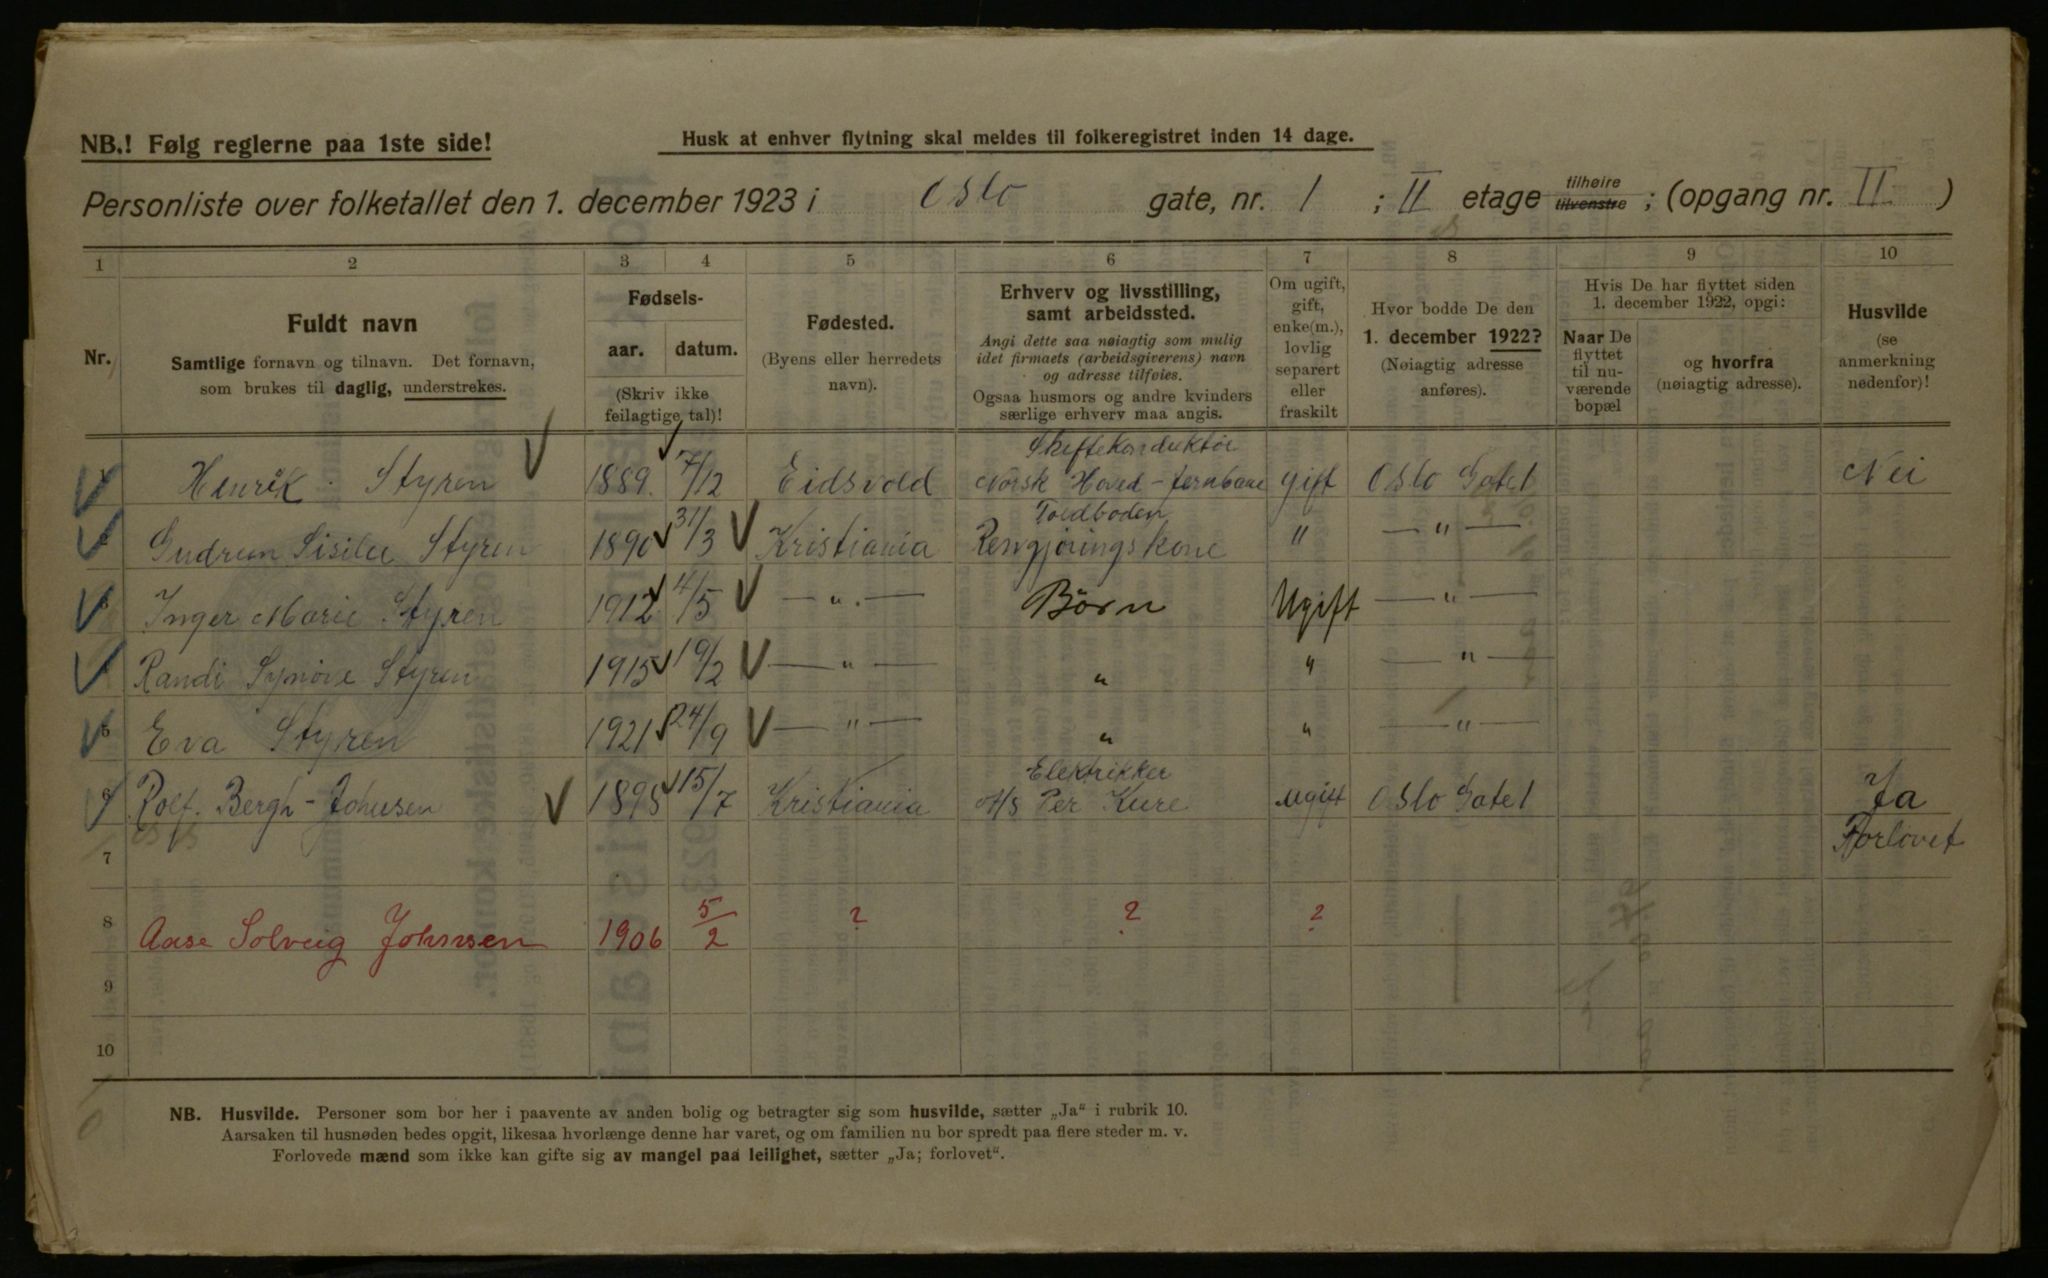 NB.! Følg reglerne paa 1ste side!
Husk at enhver flytning skal meldes til folkeregistret inden 14 dage.
Personliste over folketallet den 1. december 1923 i Oslo gate, nr. 1 ; II etage tilhøire tilvenstre ; (opgang nr. II )
1 2 3 4 5 6 7 8 9 10
Nr.
Fuldt navn
Samtlige fornavn og tilnavn. Det fornavn,
som brukes til daglig, understrekes.
Fødsels-
aar. datum.
(Skriv ikke
feilagtige tal)!
Fødested.
(Byens eller herredets
navn).
Erhverv og livsstilling,
samt arbeidssted.
Angi dette saa nøiagtig som mulig
idet firmaets (arbeidsgiverens) navn
og adresse tilføies.
Ogsaa husmors og andre kvinders
særlige erhverv maa angis.
Om ugift,
gift,
enke(m.),
lovlig
separert
eller
fraskilt
Hvor bodde De den
1. december 1922?
(Nøiagtig adresse
anføres).
Hvis De har flyttet siden
1. december 1922, opgi:
Naar De
flyttet
til nu-
værende
bopæl
og hvorfra
(nøiagtig adresse).
Husvilde
(se
anmerkning
nedenfor)!
Skiftekonduktør
1 Henrik Styren 1889. 7/12 Eidsvold Norsk Hoved-Jernbane gift Oslo Gate 1 Nei
Toldboden
2 Gudrun Sisilie Styren 1890 31/3 Kristiania Rengjøringskone " — " —
3 Inger Marie Styren 1912 4/5 — " — Børn Ugift — " —
4 Randi Synøve Styren 1915 19/2 — " — " " — " —
5 Eva Styren 1921 24/9 — " — " " — " —
Elektrikker
6 Rolf. Bergh-Johnsen 1898 15/7 Kristiania A/S Per Kure Ugift Oslo Gate 1 Ja
Forlovet
7
8 Aase Solveig Johnsen 1906 5/2 ? ? ?
9
10
NB. Husvilde. Personer som bor her i paavente av anden bolig og betragter sig som husvilde, sætter „Ja" i rubrik 10.
Aarsaken til husnøden bedes opgit, likesaa hvorlænge denne har varet, og om familien nu bor spredt paa flere steder m. v.
Forlovede mænd som ikke kan gifte sig av mangel paa leilighet, sætter „Ja; forlovet".